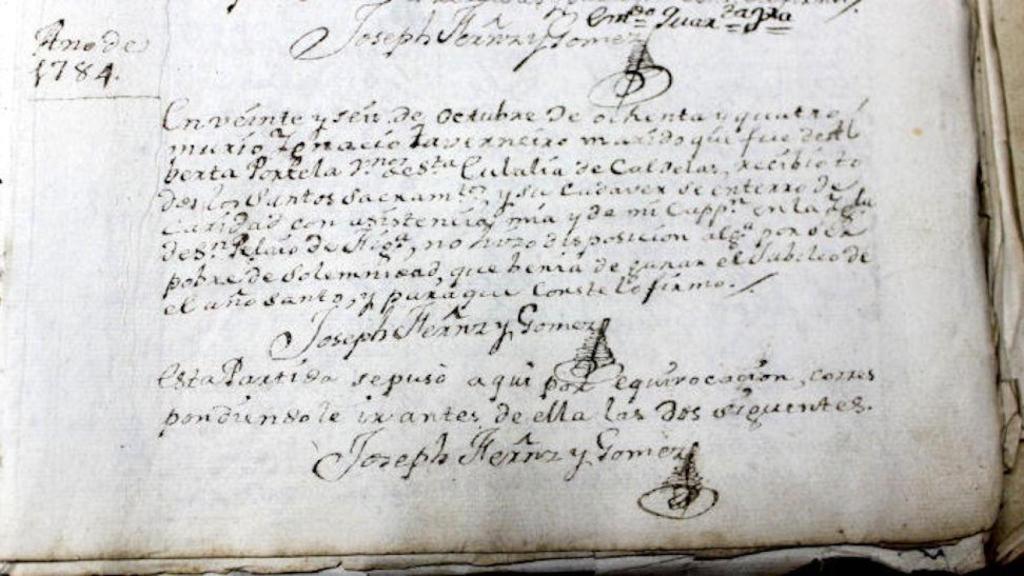 Joseph Fernz y Gomez
Año de
1784.
En veinte y seis de octubre de ochenta y quatro
murio Ignacio Taverneiro marido que fue de Al
berta Portela vnos de Sta Eulalia de Caldelas, recibio to
dos los Santos Sacramtos, y su cadaver se enterro de
caridad con asistencia mia y de mi Cappn en la Igla
de Sn Pelaio de Figa, no hizo disposicion alga por ser
pobre de solemnidad, que benia de ganar el Jubileo de
el año santo, y para que conste lo firmo.
Joseph Fernz y Gomez
Esta Partida se puso aqui por equivocacion, corres
pondiendole ir antes de ella las dos siguientes.
Joseph Fernz y Gomez